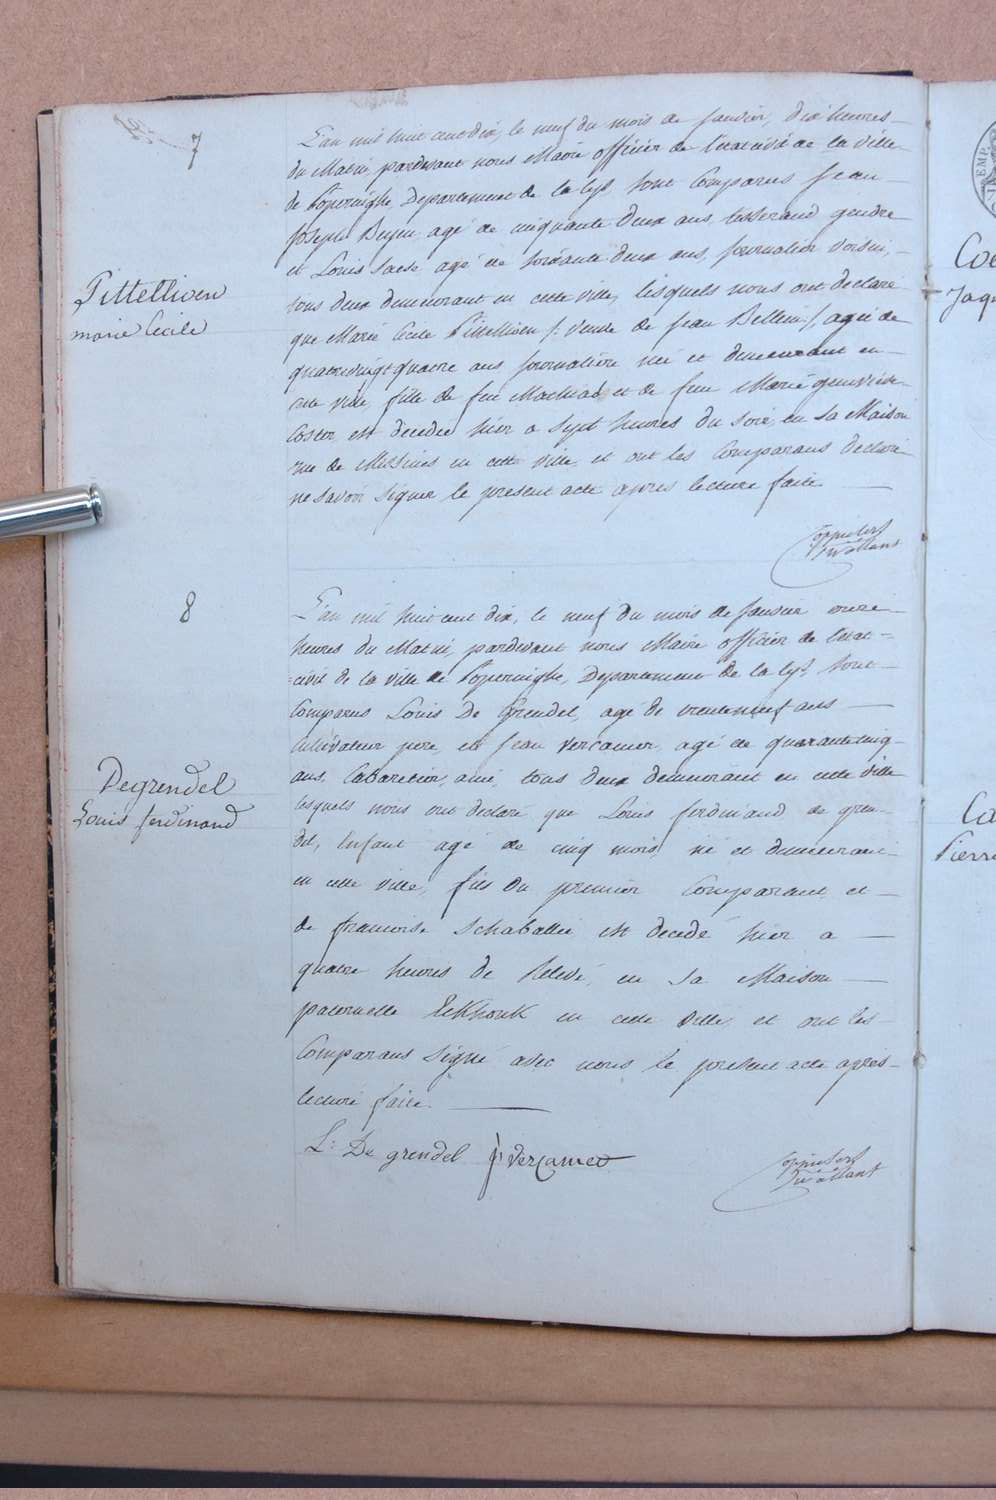 7
L'an mil huit cent dix, le neuf du mois de Janvier, dix heures
du Matin, pardevant nous Maire officier de l'etat civil de la ville
de Poperinghe, Departement de la Lys, sont Comparus Jean
Joseph agé de cinquante deux ans, tisserand gendre
et Louis agé de soixante deux ans, journalier voisin,
tous deux demeurant en cette ville, lesquels nous ont declaré
que Marie Cecile Pittellioen /: veuve de Jean Bellem :/ agée de
quatrevingt quatre ans journalière née et demeurant en
cette ville, fille de feu Mathias et de feue Marie genevieve
Coster est decedée hier a sept heures du soir, en sa Maison
rue de Messines en cette ville, et ont les Comparans declaré
ne savoir signer le present acte apres lecture faite
Pittellioen
marie Cecile
8
L'an mil huit cent dix, le neuf du mois de Janvier onze
heures du Matin, pardevant nous Maire officier de l'etat-
=civil de la ville de Poperinghe, Departement de la Lys, sont
Comparus Louis De Grendel, agé de trenteneuf ans
Cultivateur pere, et Jean Vercamer, agé de quarantecinq
ans, Cabaretier, ami, tous deux demeurant en cette ville
lesquels nous ont declaré, que Louis ferdinand de gren-
del, Enfant agé de cinq mois, né et demeurant
en cette ville, fils du premier Comparant et
de francoise Schaballie est decedé hier a
quatre heures de Relevé, en sa Maison
paternelle en cette ville, et ont les
Comparans signé avec nous le present acte après
lecture faite.
Degrendel
Louis ferdinand
L: De grendel J: Vercamer
Coe
Jaq
Ca
Pierre
EMP